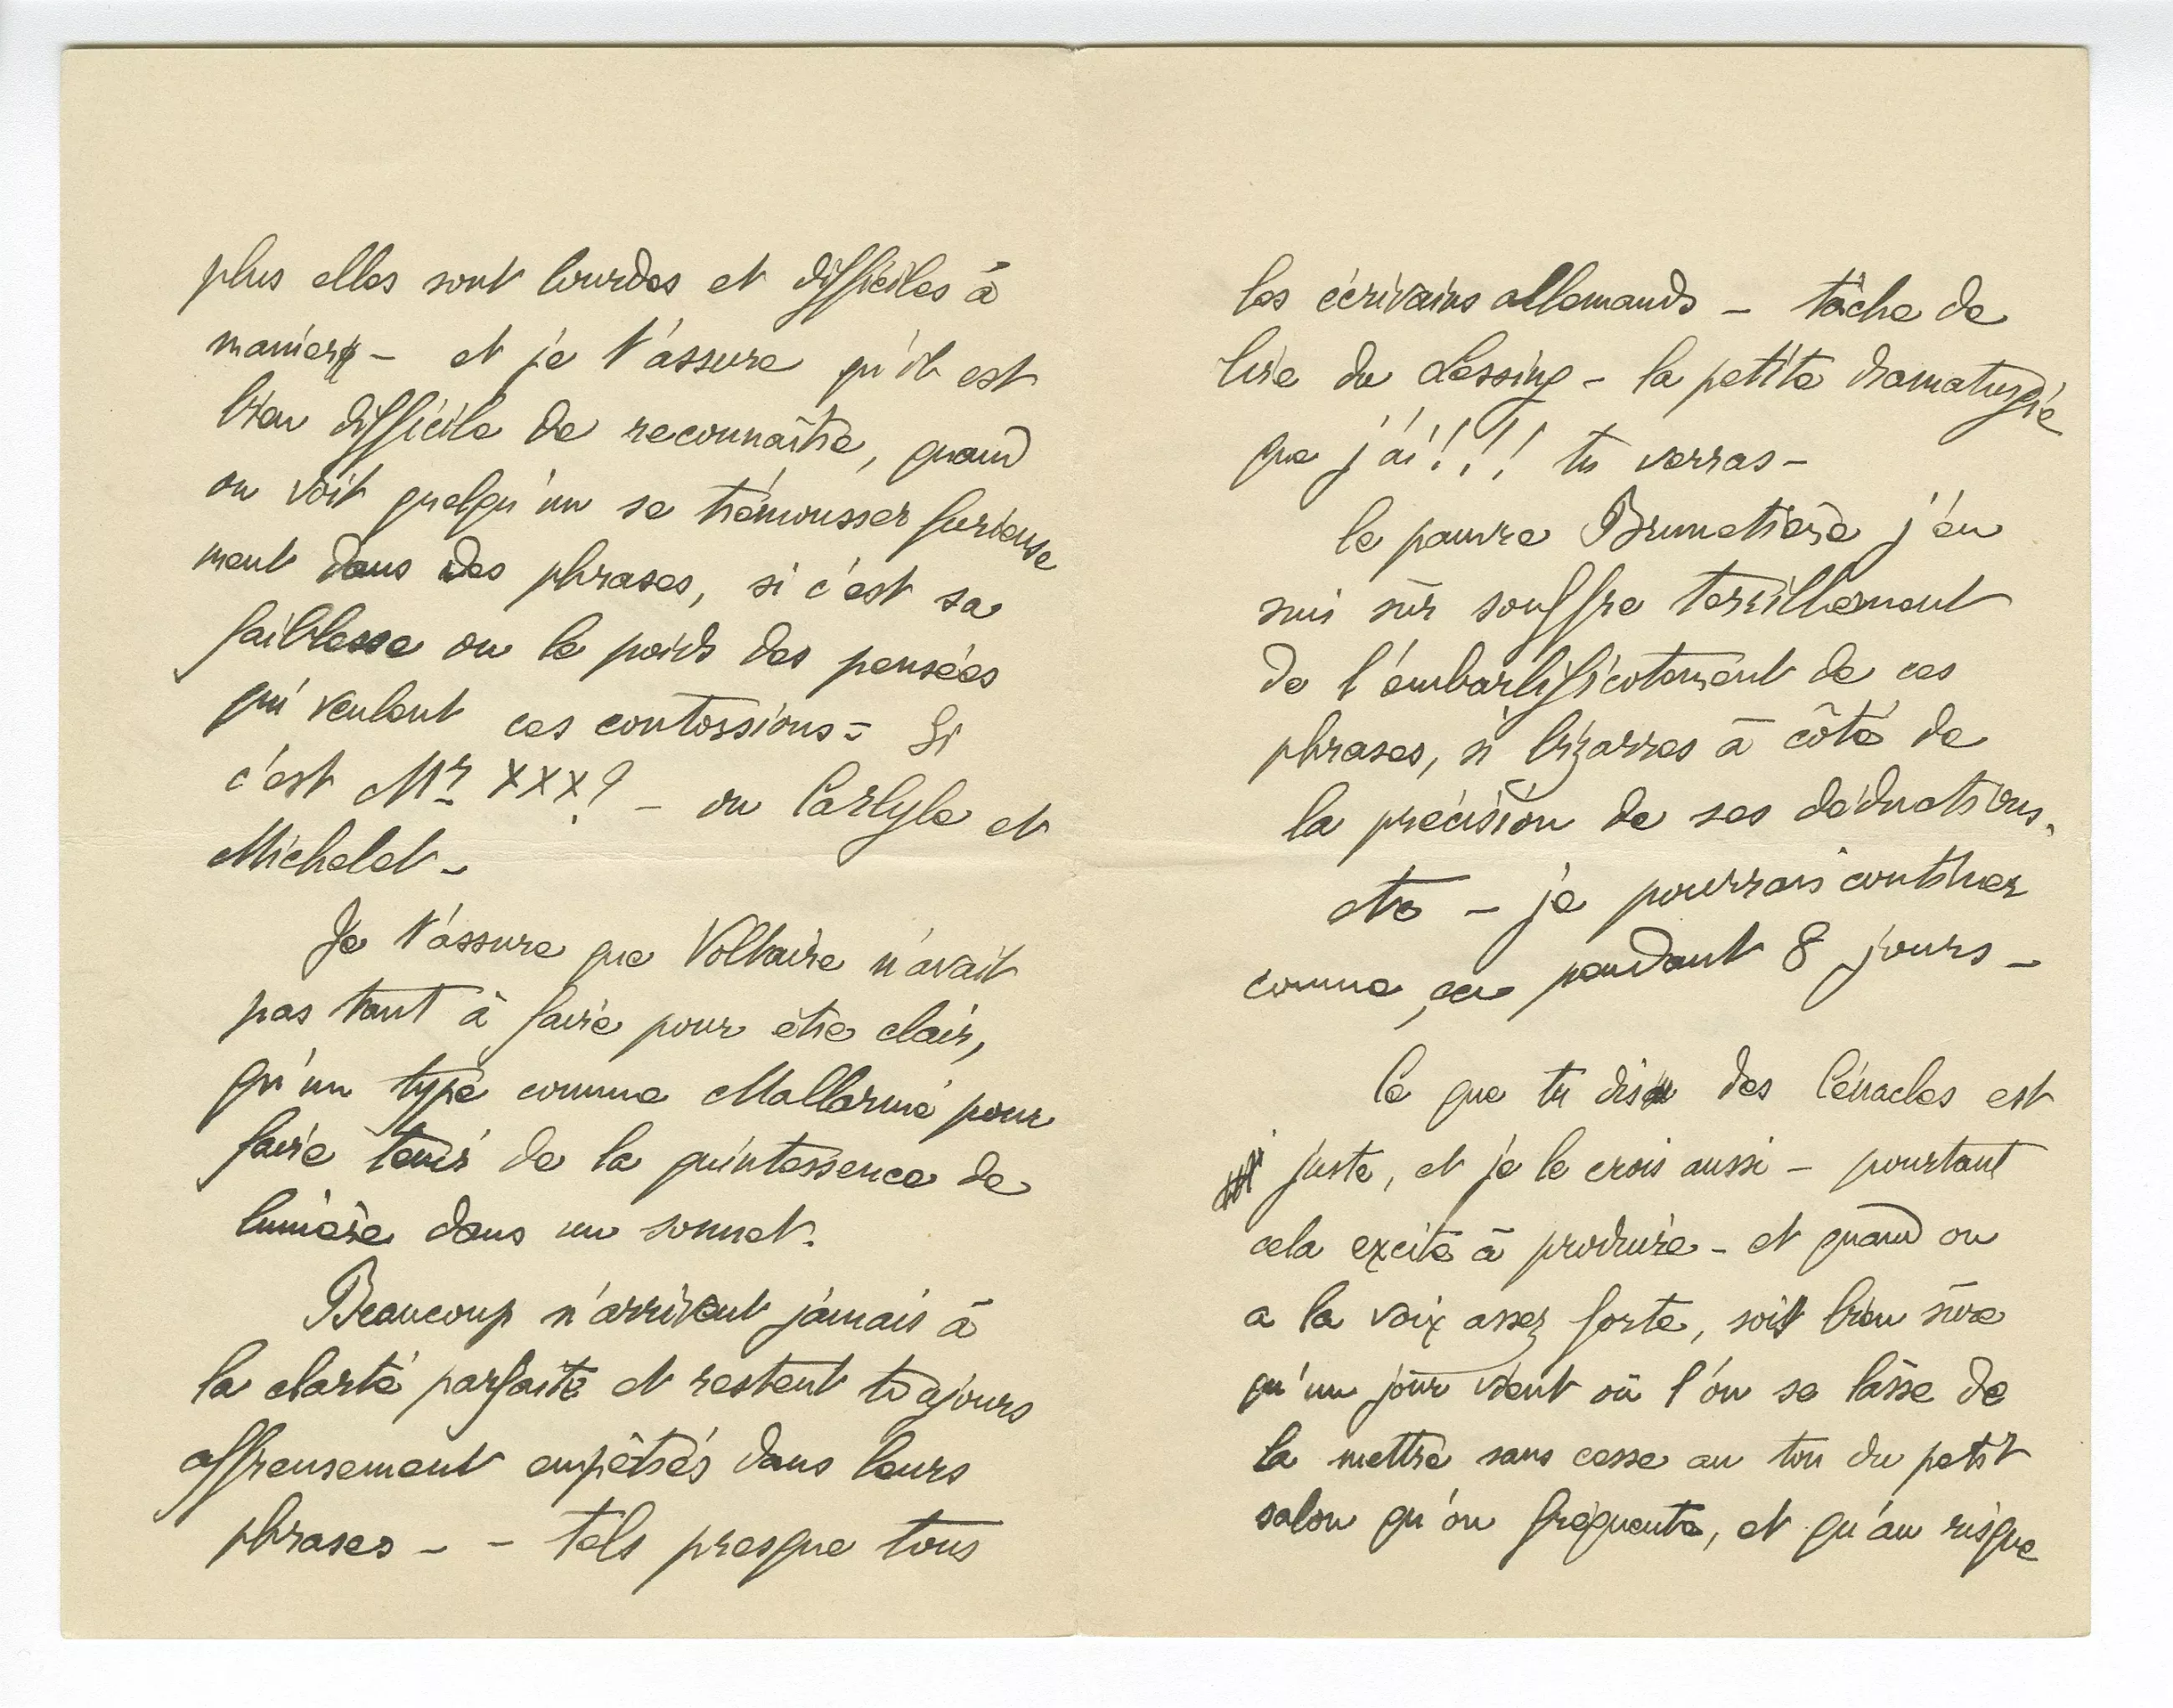 plus elles sont lourdes et difficiles à
manier – et je t'assure qu'il est
bien difficile de reconnaître, quand
on voit quelqu'un se trémousser furieuse
ment dans des phrases, si c'est sa
faiblesse ou le poids des pensées
qui veulent ces contorsions = Si
c'est Mr. xxx? – ou Carlyle et
Michelet –
Je t'assure que Voltaire n'avait
pas tant à faire pour être clair,
qu'un type comme Mallarmé pour
faire tenir de la quintessence de
lumière dans un sonnet.
Beaucoup n'arrivent jamais à
la clarté parfaite et restent toujours
affreusement empêtrés dans leurs
phrases – – tels presque tous
les écrivains allemands – tâche de
lire du Lessing – la petite dramaturgie
que j'ai!!! tu verras –
le pauvre Brunetière j'en
suis sûr souffre terriblement
de l'embarlificotement de ces
phrases, si bizarres à côté de
la précision de ses déductions.
etc – je pourrais continuer
comme ça pendant 8 jours –
Ce que tu dis des Cénacles est
juste, et je le crois aussi – pourtant
cela excite à produire – et quand on
a la voix assez forte, soit bien sûre
qu'un jour vient où l'on se lasse de
la mettre sans cesse au ton du petit
salon qu'on fréquente, et qu'au risque